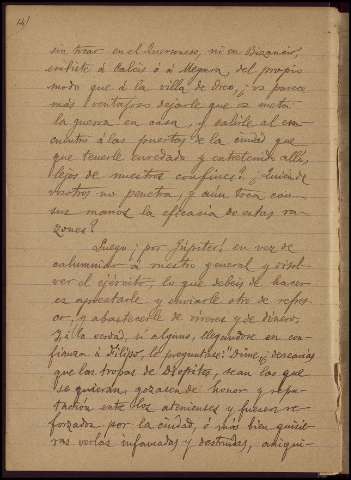 141
sin tocar en el Quersoneso, ni en Bizancio,
embiste á Calcis ó á Megara, del propio
modo que á la villa de Oreo, ¿os parece
más ventajoso dejarle que os meta
la guerra en casa, y salirle al en-
cuentro á las puertas de la ciudad que
que tenerle enredado y entretenido allá,
lejos de nuestros confines? ¿Quién de
vosotros no penetra, y aún toca con
sus manos la eficacia de estas ra-
zones?
Luego ¡por Júpiter! en vez de
calumniar á nuestro general y disol-
ver el ejército, lo que debeis de hacer
es aprestarle y enviarle otro de refres-
co, y abastecerle de víveres y de dinero.
Y á la verdad, si alguno, llegándose en con-
fianza á Filipo, le preguntase: "Dime, ¿desearías
que las tropas de Diopites, sean las que
se quieran, gozasen de honor y repu-
tación entre los atenienses y fuesen re-
forzadas por la ciudad, ó más bien quisie-
ras verlas infamadas y destruidas, aniqui-